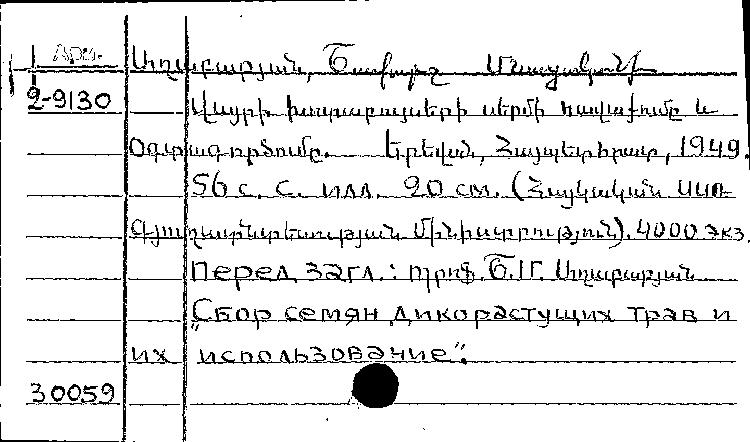 Арм.
Աղաբաբյան, Շավարշ Մնացականի
2-9130 Վայրի խոտաբույսերի սերմի հավաքումը և
Օգտագործումը. Երևան, Հայպետհրատ, 1949.
56 с. С. илл. 20 см. (Հայկական ՍՍՌ
Գյուղատնտեսության Մինիստրություն). 4000 экз.
Перед загл.: պրոֆ. Շ.Մ. Աղաբաբյան
"Сбор семян дикорастущих трав и
их использование".
30059